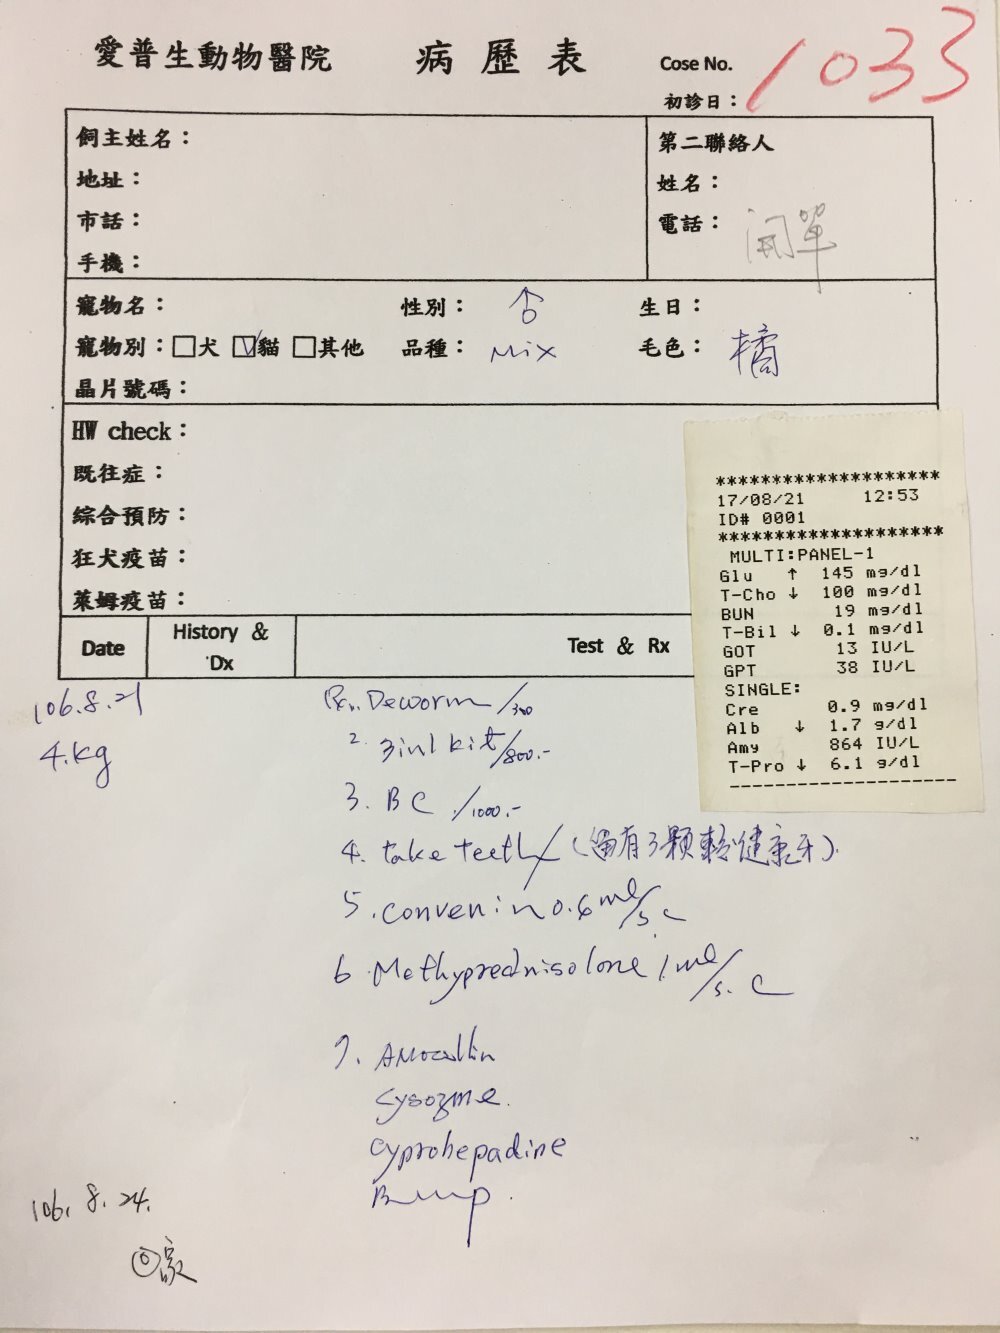 愛普生動物醫院 病歷表 Cose No. 1033
初診日：
飼主姓名：
地址：
市話：
手機：
第二聯絡人
姓名：
電話：
寵物名： 性別：♂ 生日：
寵物別：□犬 ☑貓 □其他 品種：Mix 毛色：橘
晶片號碼：
HW check：
既往症：
綜合預防：
狂犬疫苗：
萊姆疫苗：
********************
17/08/21 12:53
ID# 0001
********************
MULTI:PANEL-1
Glu ↑ 145 mg/dl
T-Cho ↓ 100 mg/dl
BUN 19 mg/dl
T-Bil ↓ 0.1 mg/dl
GOT 13 IU/L
GPT 38 IU/L
SINGLE:
Cre 0.9 mg/dl
Alb ↓ 1.7 g/dl
Amy 864 IU/L
T-Pro ↓ 6.1 g/dl
--------------------
Date History & Dx Test & Rx
106.8.21
4.kg
Deworm/300
2. 3in1 kit/800.-
3. BC /1000.-
4. take teeth (留有3顆較健康牙).
5. convenin 0.6ml/s.c
6. Methyprednisolone 1ml/s.c
7.
Lysozme.
cyprohepadine
106.8.24.